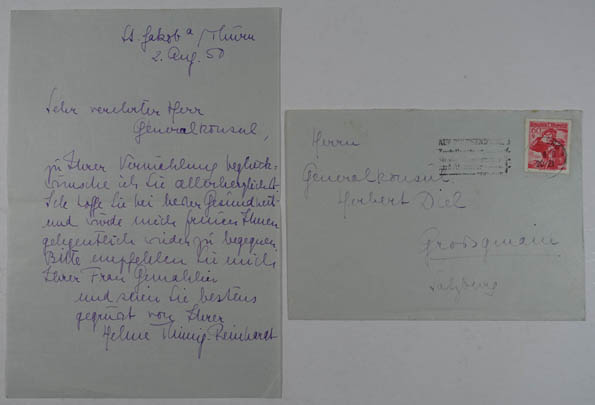 St. Jakob a/Thurn
2. Aug. 50
Sehr verehrter Herr
Generalkonsul,
zu Ihrer Vermählung beglück-
wünsche ich Sie allerherzlichst.
Ich hoffe Sie bei bester Gesundheit
und würde mich freuen Ihnen
gelegentlich wieder zu begegnen.
Bitte empfehlen Sie mich
Ihrer Frau Gemahlin
und seien Sie bestens
gegrüsst von Ihrer
Helene Thimig-Reinhardt
Herrn
Generalkonsul
Herbert Diel
Grossgmain
Salzburg